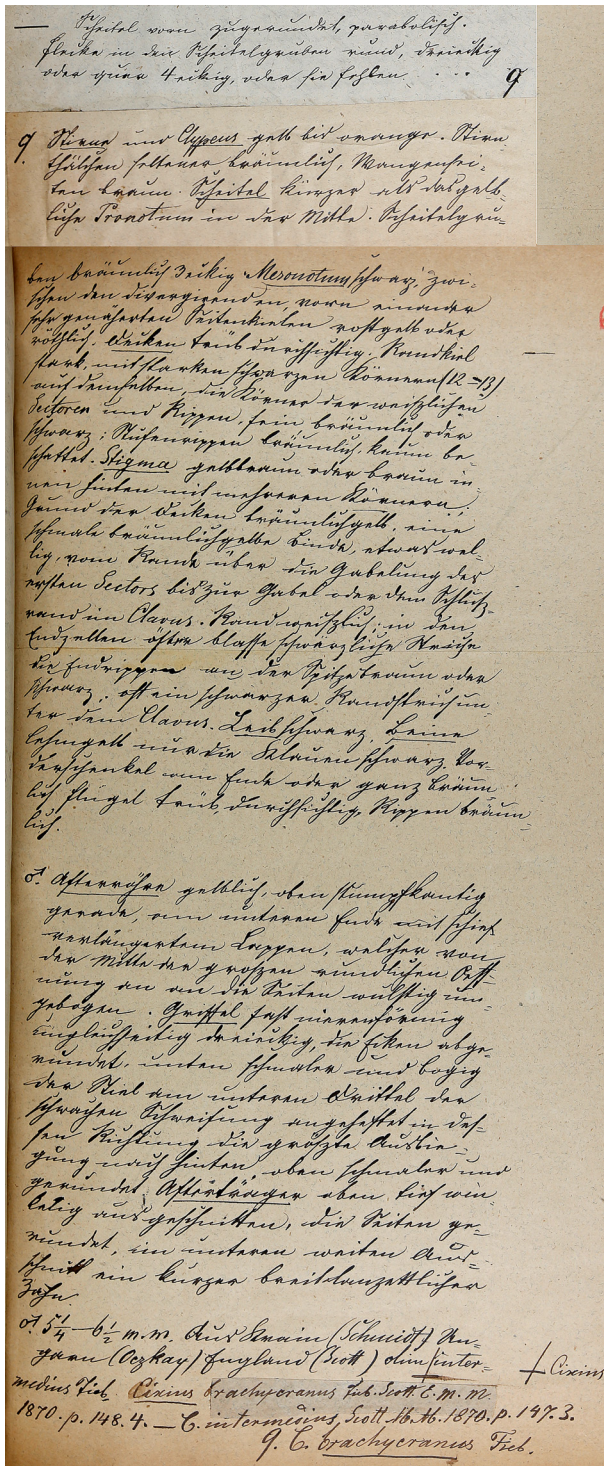 — Scheitel vorn zugerundet, parabolisch.
Flecke in den Scheitelgruben rund, dreieckig
oder quer 4eckig, oder sie fehlen. . . . 9
9. Stirne und Clypeus gelb bis orange. Stirn-
thälchen seltener bräunlich, Wangensei-
ten braun. Scheitel kürzer als das gelb-
liche Pronotum in der Mitte. Scheitelgru-
ben bräunlich 3eckig Mesonotum schwarz, zwi-
schen den divergirenden, vorn einander
sehr genäherten Seitenkielen rostgelb oder
röthlich. Decken trüb durchsichtig, Randkiel
stark, mit starken schwarzen Körnern (12–13)
auf demselben, die Körner der weisslichen
Sectoren und Rippen, fein bräunlich oder
schwarz; Stufenrippen bräunlich, kaum be-
schattet. Stigma gelbbraun oder braun in-
nen hinten mit mehreren Körnern.
Grund der Decken bräunlichgelb, eine
schmale bräunlichgelbe Binde, etwas wel-
lig, vom Rande über die Gabelung des
ersten Sectors bis zur Gabel oder dem Schluss-
rand im Clavus. Rand weisslich; in den
Endzellen öfter blasse schwärzliche Striche
die Endrippen an der Spitze braun oder
schwarz, oft ein schwarzer Randstrich un-
ter dem Clavus. Leib schwarz, Beine
lehmgelb nur die Klauen schwarz, Vor-
derschenkel am Ende oder ganz bräun-
lich. Flügel trüb, durchsichtig, Rippen bräun-
lich.
♂. Afterröhre gelblich, oben stumpfkantig
gerade, am unteren Ende mit schief
verlängertem Lappen, welcher von
der Mitte der grossen rundlichen Oeff-
nung an an die Seiten wulstig um-
gebogen. Griffel fast nierenförmig
ungleichseitig dreieckig, die Ecken abge-
rundet, unten schmaler und bogig
der Stiel am unteren Drittel der
schwachen Schweifung angeheftet in des-
sen Richtung die grösste Ausbie-
gung nach hinten, oben schmaler und
gerundet. Afterträger oben tief win-
kelig ausgeschnitten, die Seiten ge-
rundet, im unteren weiten Aus-
schnitt ein kurzer breit lanzettlicher
Zahn.
♂. 5¼–6½ m.m. Aus Krain (Schmidt) Un-
garn (Oczkay) England (Scott) olim inter- + Cixius
medius Fieb. Cixius brachycranus Fieb. Scott. E. m. m.
1870. p. 148. 4. — C. intermedius, Scott M. M. 1870. p. 147. 3.
9. C. brachycranus Fieb.